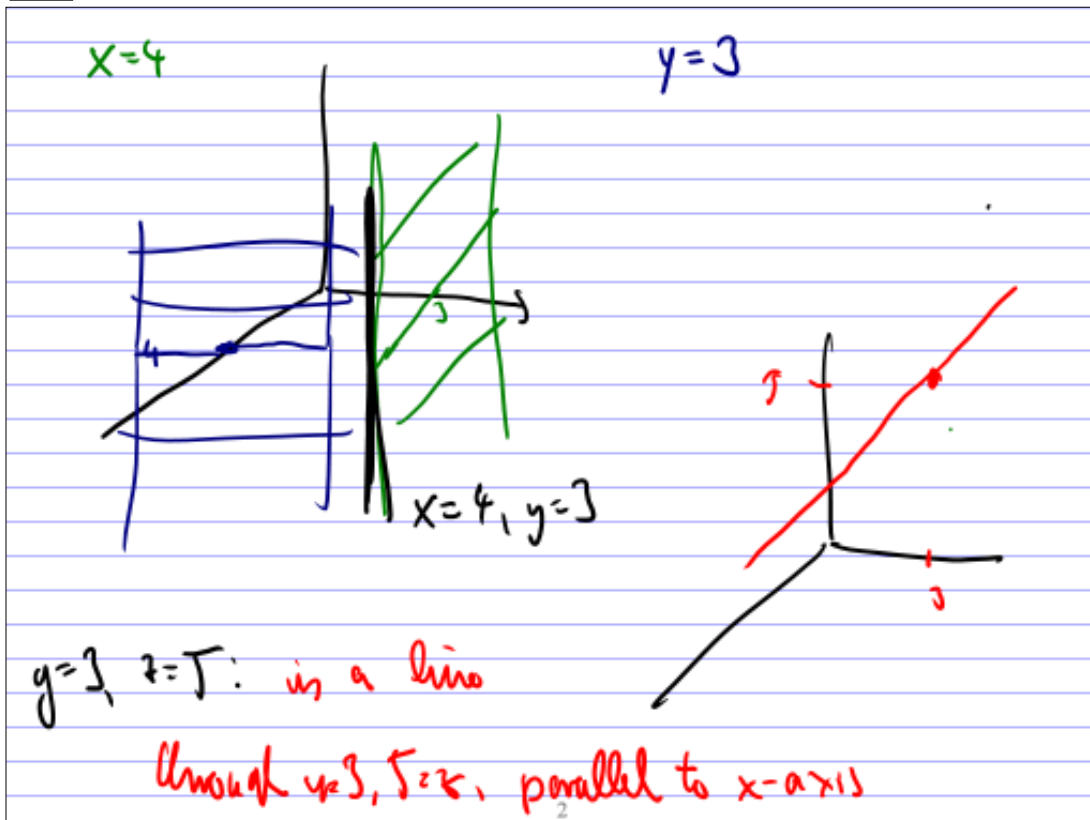 x=4
y=3
3
4
x=4, y=3
5
3
y=3, z=5: is a line
through y=3, 5=z, parallel to x-axis
2